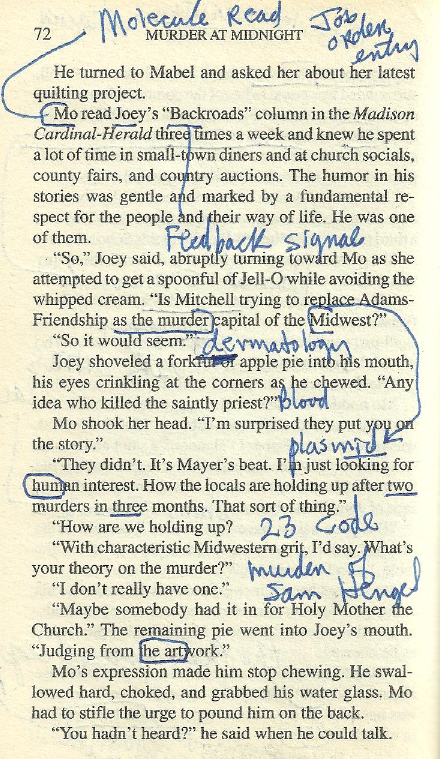 Molecule Read
Job
order
entry
72 MURDER AT MIDNIGHT
He turned to Mabel and asked her about her latest
quilting project.
Mo read Joey's "Backroads" column in the Madison
Cardinal-Herald three times a week and knew he spent
a lot of time in small-town diners and at church socials,
county fairs, and country auctions. The humor in his
stories was gentle and marked by a fundamental re-
spect for the people and their way of life. He was one
of them.
Feedback signals
"So," Joey said, abruptly turning toward Mo as she
attempted to get a spoonful of Jell-O while avoiding the
whipped cream. "Is Mitchell trying to replace Adams-
Friendship as the murder capital of the Midwest?"
"So it would seem."
dermatology
Joey shoveled a forkful of apple pie into his mouth,
his eyes crinkling at the corners as he chewed. "Any
idea who killed the saintly priest?"
Blood
Mo shook her head. "I'm surprised they put you on
the story."
plasmid
"They didn't. It's Mayer's beat. I'm just looking for
human interest. How the locals are holding up after two
murders in three months. That sort of thing."
"How are we holding up?
23 Code
"With characteristic Midwestern grit, I'd say. What's
your theory on the murder?"
murder of
"I don't really have one."
Sam Hengel
"Maybe somebody had it in for Holy Mother the
Church." The remaining pie went into Joey's mouth.
"Judging from the artwork."
Mo's expression made him stop chewing. He swal-
lowed hard, choked, and grabbed his water glass. Mo
had to stifle the urge to pound him on the back.
"You hadn't heard?" he said when he could talk.